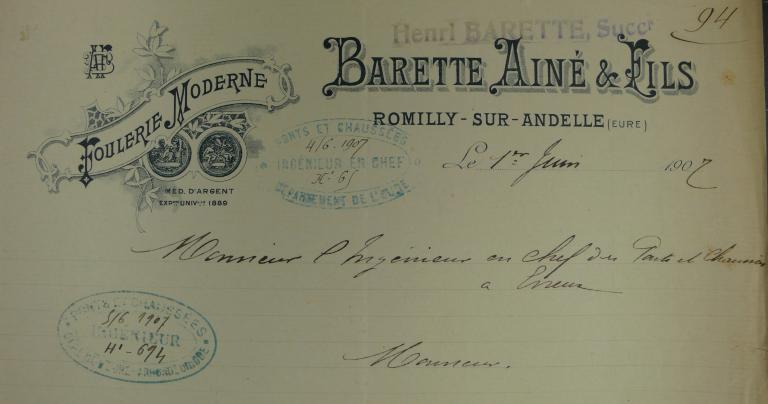 94
Henri BARETTE, Succr
BARETTE AINÉ & FILS
FOULERIE MODERNE
ROMILLY-SUR-ANDELLE (EURE)
MED. D'ARGENT
EXPON UNIVLLE 1889
PONTS ET CHAUSSÉES
4/6 1907
INGÉNIEUR EN CHEF
N° 65
DÉPARTEMENT DE L'EURE
Le 1er Juin 1907
Monsieur l'Ingénieur en chef des Ponts et Chaussées
a Evreux
PONTS ET CHAUSSÉES
5/6 1907
INGÉNIEUR
N° - 694
Monsieur.